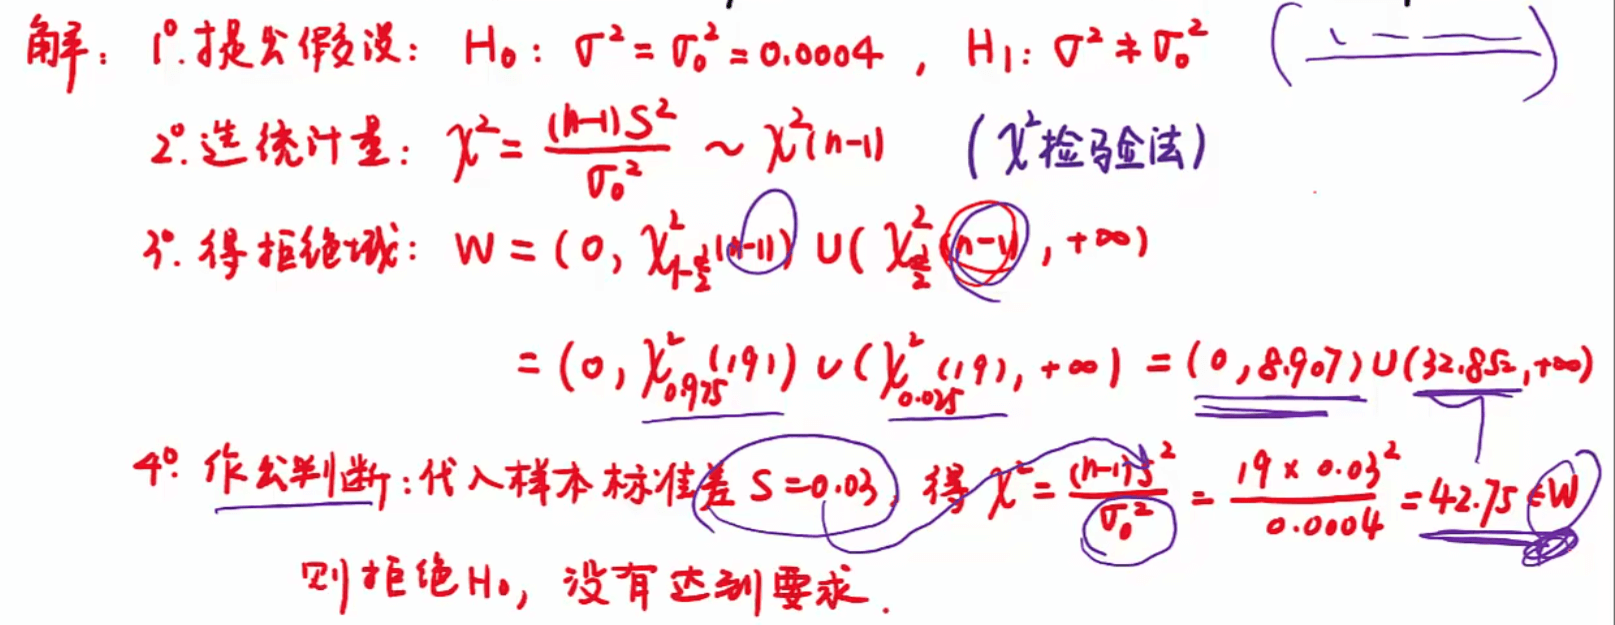 解：1°. 提出假设： H₀：σ² = σ₀² = 0.0004 ， H₁：σ² ≠ σ₀²
2°. 选统计量： χ² = (n-1)S² / σ₀² ~ χ²(n-1) （χ²检验法）
3°. 得拒绝域： W = (0, χ²_{1-α/2}(n-1)) ∪ (χ²_{α/2}(n-1), +∞)
= (0, χ²_{0.975}(19)) ∪ (χ²_{0.025}(19), +∞) = (0, 8.907) ∪ (32.852, +∞)
4°. 作出判断：代入样本标准差 S = 0.03，得 χ² = (n-1)S² / σ₀² = 19 × 0.03² / 0.0004 = 42.75 ∈ W
则拒绝H₀，没有达到要求.